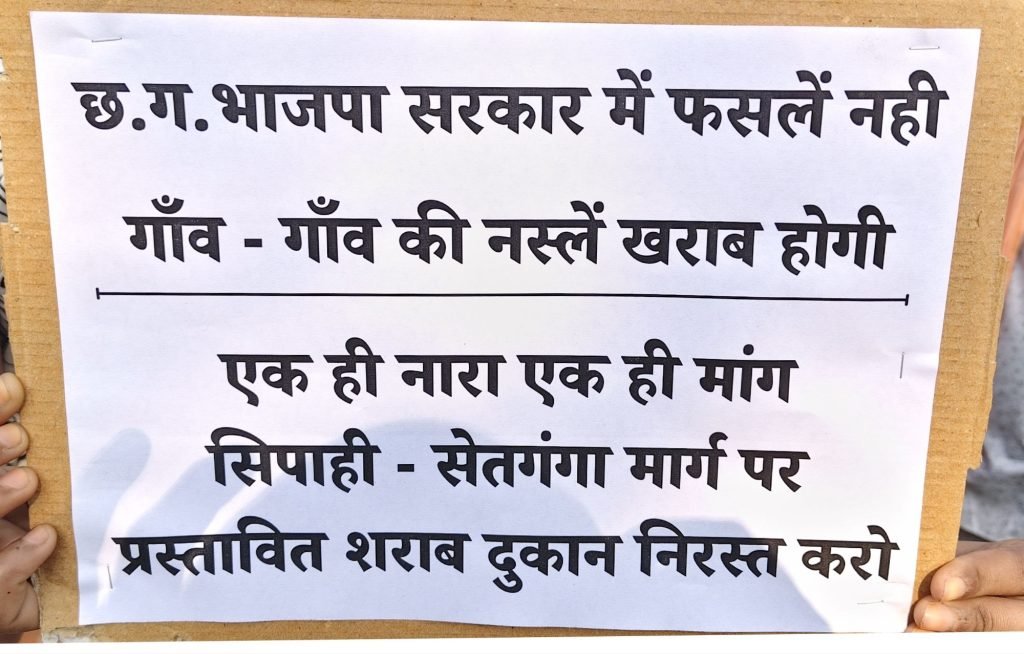 छ.ग. भाजपा सरकार में फसलें नही
गाँव - गाँव की नस्लें खराब होगी
एक ही नारा एक ही मांग
सिपाही - सेतगंगा मार्ग पर
प्रस्तावित शराब दुकान निरस्त करो